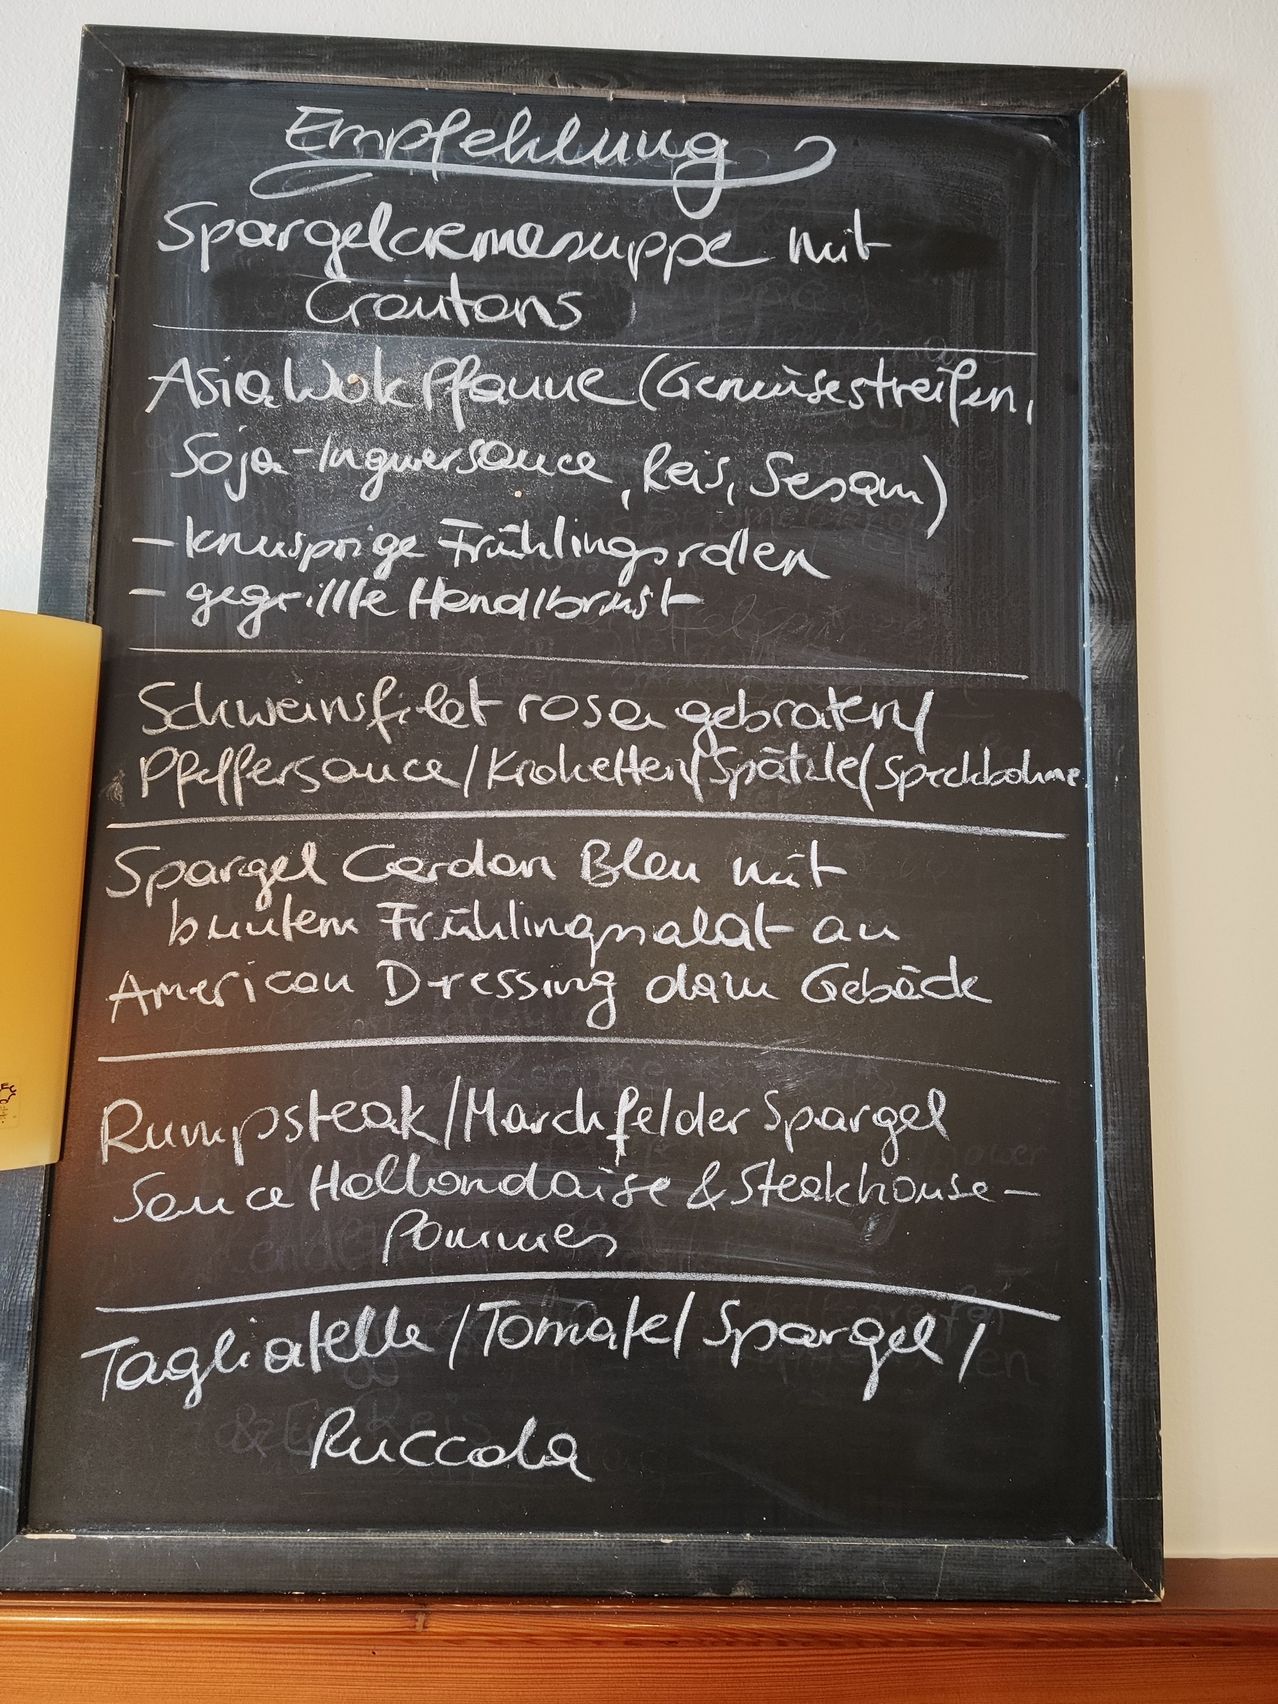 Empfehlung
Spargelcremesuppe mit
Croutons
Asia Wok Pfanne (Gemüsestreifen,
Soja-Ingwersauce, Reis, Sesam)
- knusprige Frühlingsrollen
- gegrillte Hendlbrust
Schweinsfilet rosa gebraten/
Pfeffersauce/Kroketten/Spätzle/Speckbohne
Spargel Cordon Bleu mit
buntem Frühlingssalat an
American Dressing dazu Gebäck
Rumpsteak/Marchfelder Spargel
Sauce Hollandaise & Steakhouse-
Pommes
Tagliatelle/Tomate/Spargel/
Ruccola